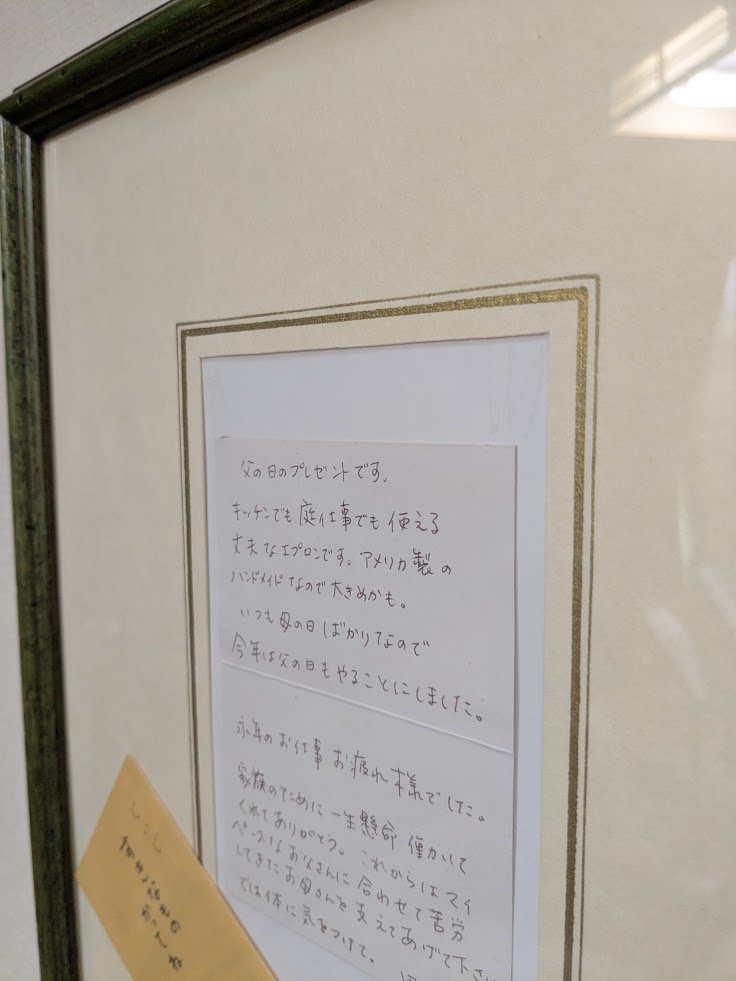 父の日のプレゼントです。
キッチンでも庭仕事でも使える
丈夫なエプロンです。アメリカ製の
ハンドメイドなので大きめかも。
いつも母の日ばかりなので
今年は父の日もやることにしました。
永年のお仕事お疲れ様でした。
家族のために一生懸命働いて
くれてありがとう。これからはマイ
ペースなお父さんに合わせて苦労
してきたお母さんを支えてあげて下さい
では体に気をつけて。